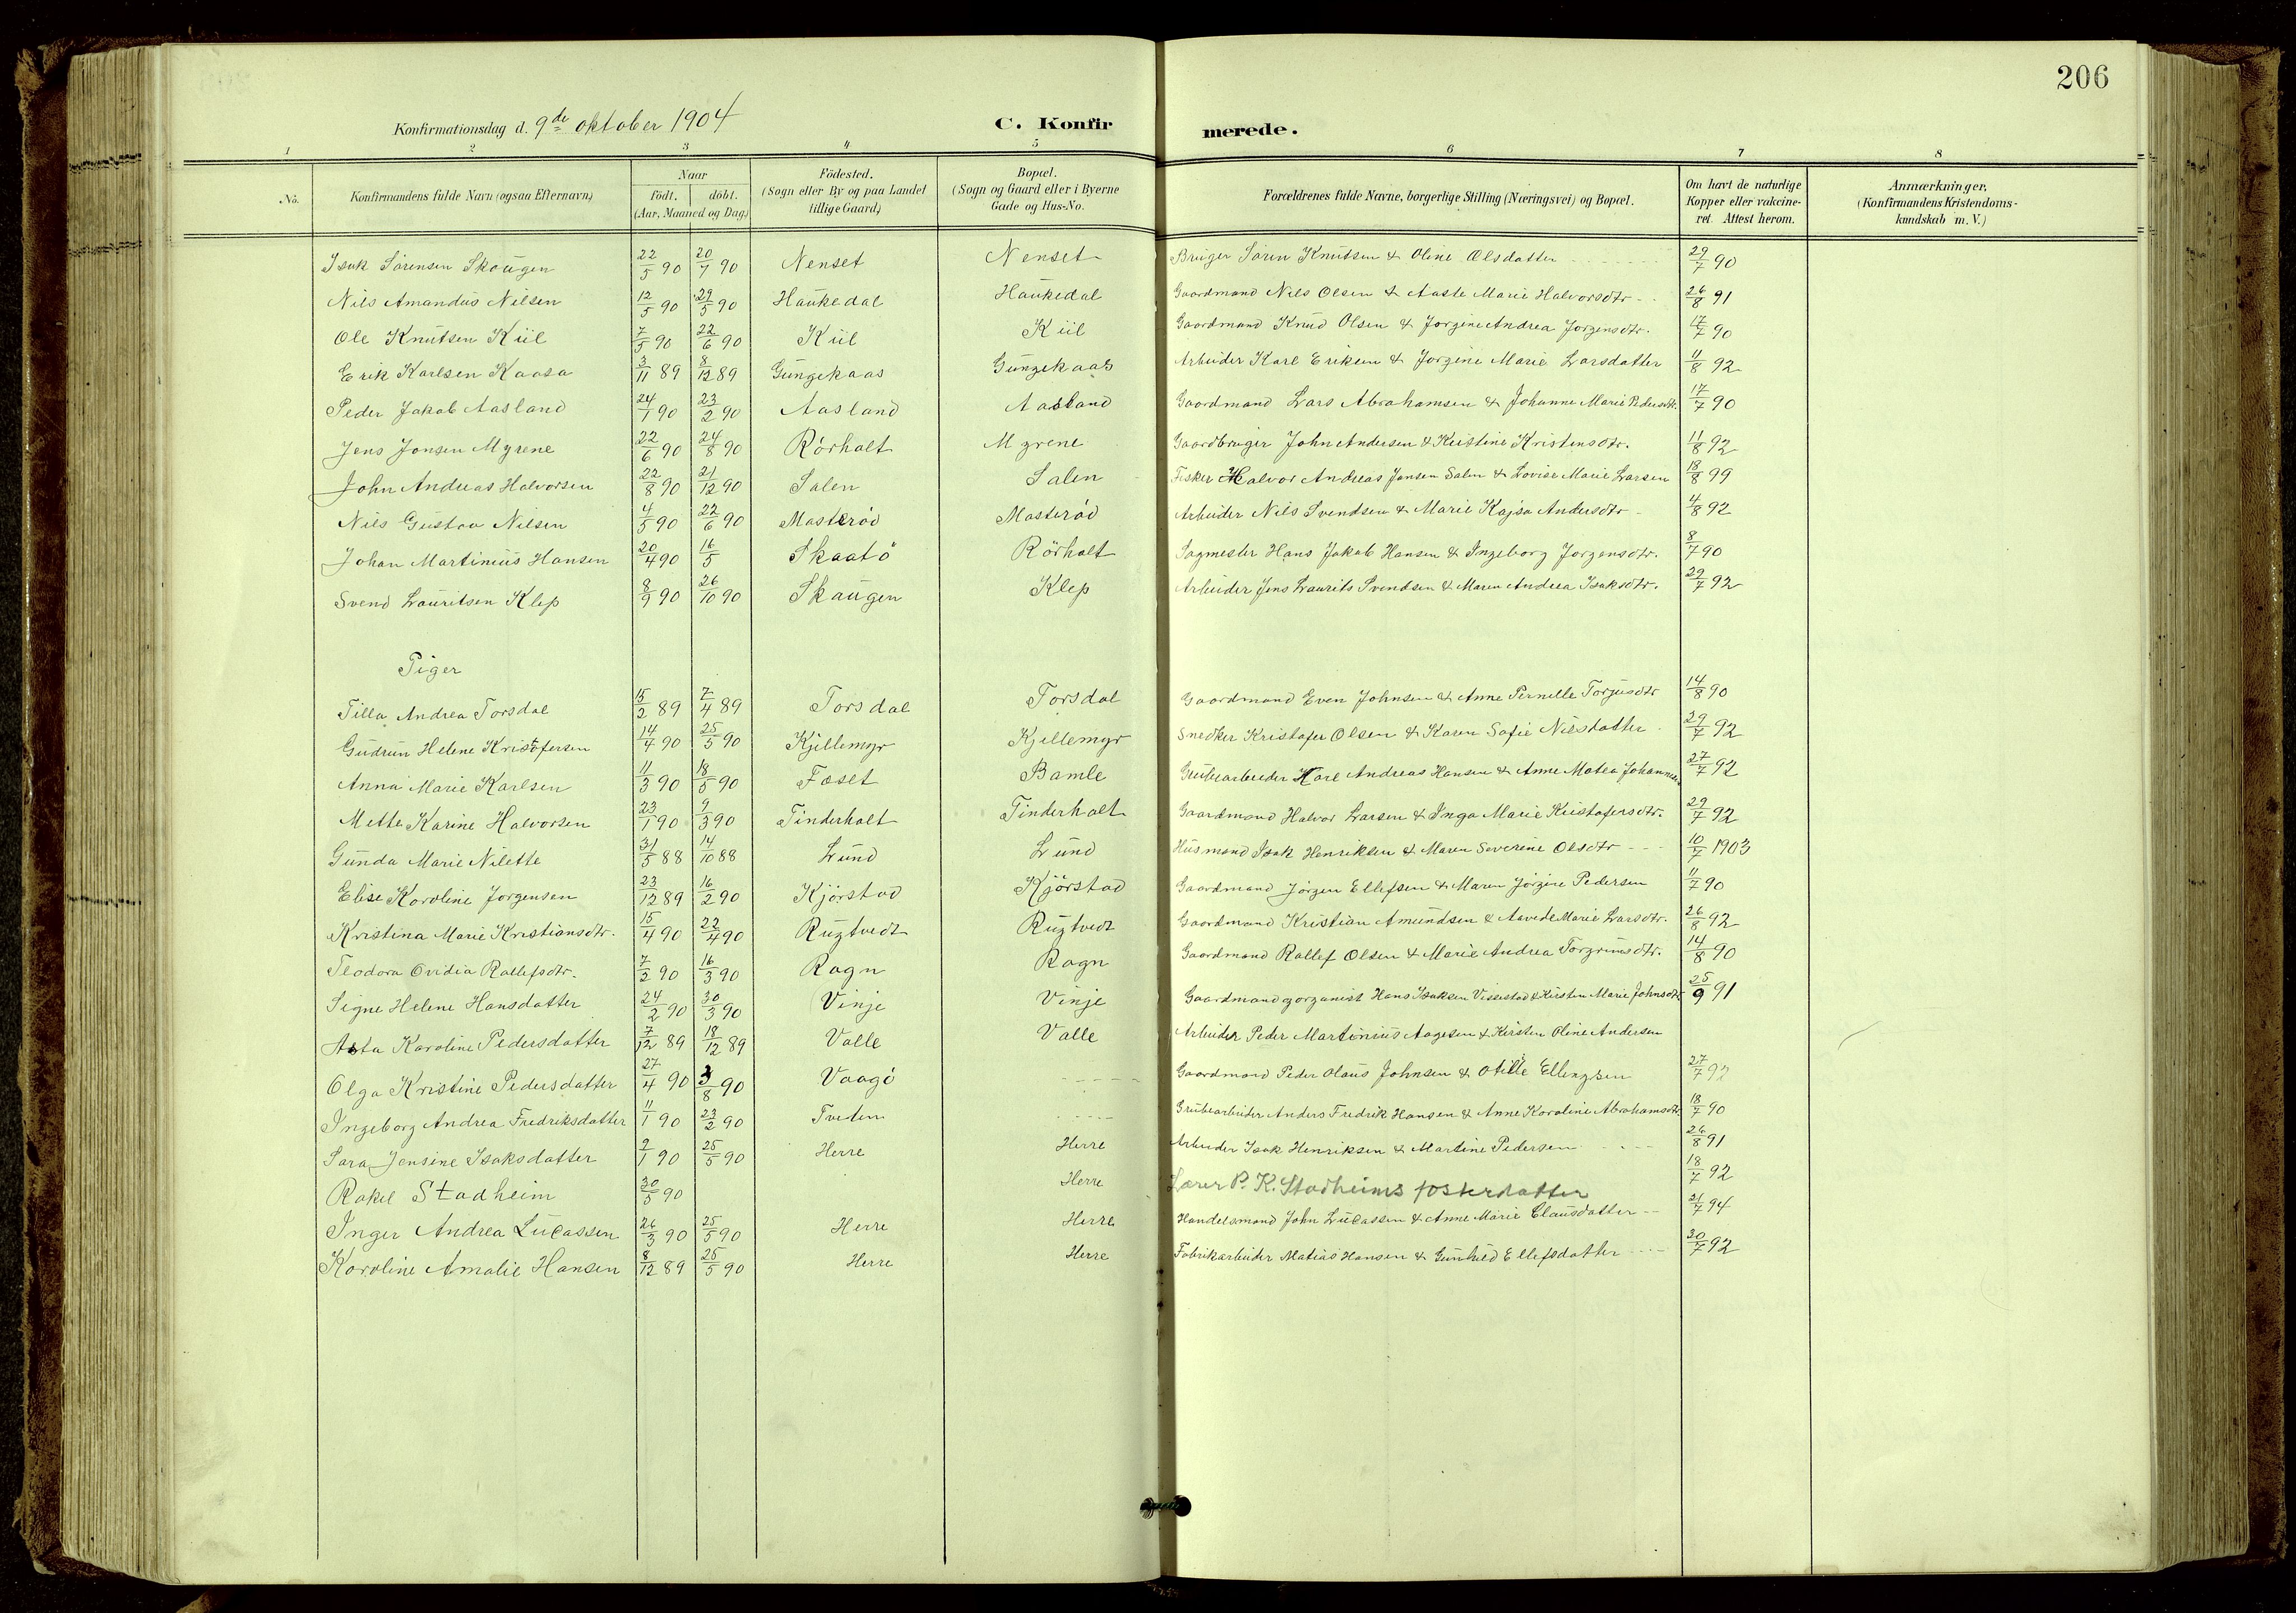 206
Konfirmationsdag d. 9de oktober 1904
C. Konfirmerede.
1 2 3 4 5 6 7 8
No.
Konfirmandens fulde Navn (ogsaa Efternavn)
Naar
födt. döbt.
(Aar, Maaned og Dag)
Födested.
(Sogn eller By og paa Landet tillige Gaard)
Bopæl.
(Sogn og Gaard eller i Byerne Gade og Hus-No.
Forældrenes fulde Navne, borgerlige Stilling (Næringsvei) og Bopæl.
Om havt de naturlige Kopper eller vakcineret. Attest herom.
Anmærkninger.
(Konfirmandens Kristendomskundskab m. V.)
Isak Sörensen Skaugen 22/5 90 20/7 90 Nenset Nenset Bruger Sören Knutsen & Oline Olsdatter 29/7 90
Nils Amandus Nilsen 12/5 90 29/5 90 Haukedal Haukedal Gaardmand Nils Olsen & Aaste Marie Halvorsdtr 26/8 91
Ole Knutsen Kiil 7/5 90 22/6 90 Kiil Kiil Gaardmand Knud Olsen & Jorgine Andrea Jorgensdtr. 17/7 90
Erik Karlsen Kaasa 3/11 89 8/12 89 Gungekaas Gungekaas Arbeider Karl Eriksen & Jorgine Marie Larsdatter 11/8 92
Peder Jakob Aasland 24/1 90 23/2 90 Aasland Aasland Gaardmand Lars Abrahamsen & Johanne Marie Pedersdtr. 17/7 90
Jens Jonsen Myrene 22/6 90 24/8 90 Rörholt Myrene Gaardbruger John Andersen & Kristine Kristensdtr. 11/8 92
John Andreas Halvorsen 22/8 90 21/12 90 Salen Salen Fisker Halvor Andreas Jansen Salen & Lovise Marie Larsen 18/8 99
Nils Gustav Nilsen 4/5 90 22/6 90 Masteröd Masteröd Arbeider Nils Svendsen & Marie Kajsa Andersdtr 4/8 92
Johan Martinius Hansen 20/4 90 16/5 Skaatö Rörholt Sagmester Hans Jakob Hansen & Ingeborg Jorgensdtr. 8/7 90
Svend Lauritsen Klep 8/9 90 26/10 90 Skaugen Klep Arbeider Jens Laurits Svendsen & Maren Andrea Isaksdtr. 29/7 92
Piger
Tilla Andrea Torsdal 15/2 89 7/4 89 Torsdal Torsdal Gaardmand Even Johnsen & Anne Pernille Torjusdtr 14/8 90
Gudrun Helene Kristofersen 14/4 90 25/5 90 Kjellemyr Kjellemyr Snedker Kristofer Olsen & Karen Sofie Nilsdatter 29/7 92
Anna Marie Karlsen 11/3 90 18/5 90 Foset Bamle Grubearbeider Karl Andreas Hansen & Anne Matea Johannesen 27/7 92
Mette Karine Halvorsen 23/1 90 9/3 90 Tinderholt Tinderholt Gaardmand Halvor Larsen & Inga Marie Kristofersdtr. 29/7 92
Gunda Marie Nilette 31/5 88 14/10 88 Lund Lund Husmand Isak Henriksen & Maren Severine Olsdtr 10/7 1903
Elise Karoline Jorgensen 23/12 89 16/2 90 Kjörstad Kjörstad Gaardmand Jörgen Ellefsen & Maren Jörgine Pedersen 11/7 90
Kristina Marie Kristiansdtr. 15/4 90 22/4 90 Rugtvedt Rugtvedt Gaardmand Kristian Amundsen & Marie Larsdtr. 26/8 92
Teodora Ovidia Rollefsdtr. 7/2 90 16/3 90 Rogn Rogn Gaardmand Rollef Olsen & Marie Andrea Torgrimsdtr. 14/8 90
Signe Helene Hansdatter 24/2 90 30/3 90 Vinje Vinje Gaardmand og organist Hans Isaksen Vissestad & Kirsten Marie Johnsdtr. 25/9 91
Asta Karoline Pedersdatter 7/12 89 18/12 89 Valle Valle Arbeider Peder Martinius Aagesen & Kirsten Oline Andersen
Olga Kristine Pedersdatter 27/4 90 3/8 90 Vaagö - - - - - Gaardmand Peder Olaus Johnsen & Otilie Ellingsen 27/7 92
Ingeborg Andrea Fredriksdatter 11/1 90 23/2 90 Tveten - - - - Grubearbeider Anders Fredrik Hansen & Anne Karoline Abrahamsdtr. 18/7 90
Sara Jensine Isaksdatter 2/1 90 25/5 90 Herre Herre Arbeider Isak Henriksen & Martine Pedersen 26/8 91
Rakel Stadheim 30/5 90 Herre Lærer P. K. Stadheims fosterdatter 18/7 92
Inger Andrea Lucassen 26/3 90 25/5 90 Herre Herre Handelsmand John Lucassen & Anne Marie Clausdatter 21/7 94
Karoline Amalie Hansen 8/12 89 25/5 90 Herre Herre Fabrikarbeider Matias Hansen & Gunhild Ellefsdatter 30/7 92